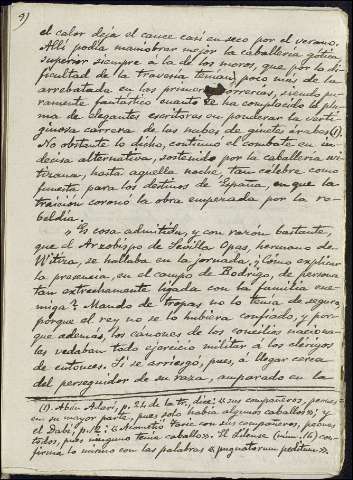 9)
el calor deja el cauce casi en seco por el verano.
Allí podía maniobrar mejor la caballería goda,
superior siempre á la de los moros, que por la di-
ficultad de la travesía tenían poco más de la
arrebatada en las primeras correrías, siendo pu-
ramente fantástico cuanto se ha complacido la plu-
ma de elegantes escritores en ponderar la verti-
ginosa carrera de las nubes de ginetes árabes (1).
No obstante lo dicho, continuó el combate en in-
decisa alternativa, sostenido por la caballería wi-
tizana, hasta aquella noche, tan célebre como
funesta para los destinos de España, en que la
traición coronó la obra empezada por la re-
beldía.
"Es cosa admitida, y con razón bastante,
que el Arzobispo de Sevilla Opas, hermano de
Witiza, se hallaba en la jornada. ¿Cómo explicar
la presencia, en el campo de Rodrigo, de persona
tan estrechamente ligada con la familia ene-
miga? Mando de tropas no lo tenía de seguro,
porque el rey no se lo hubiera confiado, y por-
que además, los cánones de los concilios naciona-
les vedaban todo ejercicio militar á los clérigos
de entonces. Si se arriesgó, pues, á llegar cerca
del perseguidor de su raza, amparado en la
(1). Abén Adarí, p. 24 de la tr., dice: «sus compañeros, peones
en su mayor parte, pues solo había algunos caballos»; y
el Dabí, p. 12: « taric con sus compañeros, peones
todos, pues ninguno tenía caballo». El Silense (núm. 16) con-
firma lo mismo con las palabras « peditum».